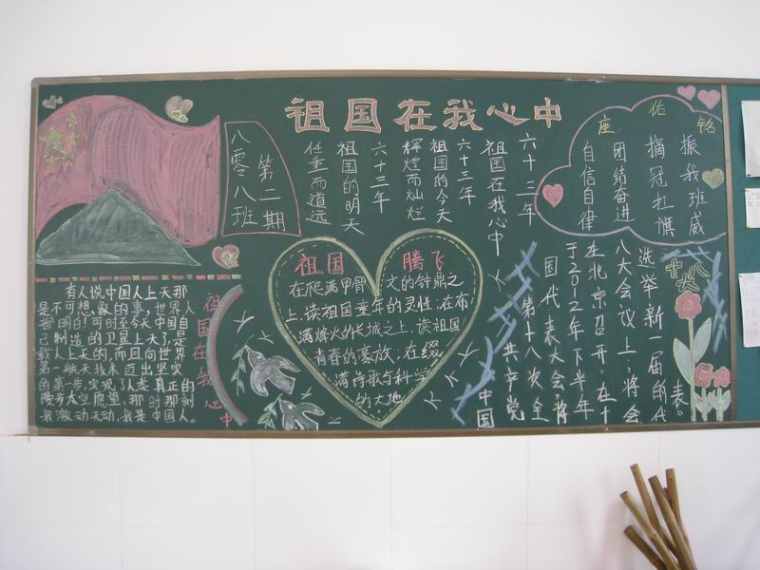 祖国在我心中
八零八班
第二期
六十三年
祖国在我心中
六十三年
祖国的今天
辉煌而灿烂
六十三年
祖国的明天
任重而道远
座佑铭
振我班威
摘冠扛旗
团结奋进
自信自律
有人说中国人上天那
是不可想象的事,世界人
的!可时至今天中国自
己制造的卫星上天了,是
载人上天的,而且向世界
第一航天技术迈出坚实
的第一步,实现了人类真正的
太空愿望,那时那刻
我激动天动,我是中国人。
祖国在我心中
祖国 腾飞
在爬满甲骨文的钟鼎之
上,读祖国童年的灵性;在布
满烽火的长城之上,读祖国
青春的豪放;在缀
满诗歌与科学
的大地
中国
共产党
第十八次全
国代表大会,将
于2012年下半年
在北京召开,在十
八大会议上,将会
选举新一届的代
表。